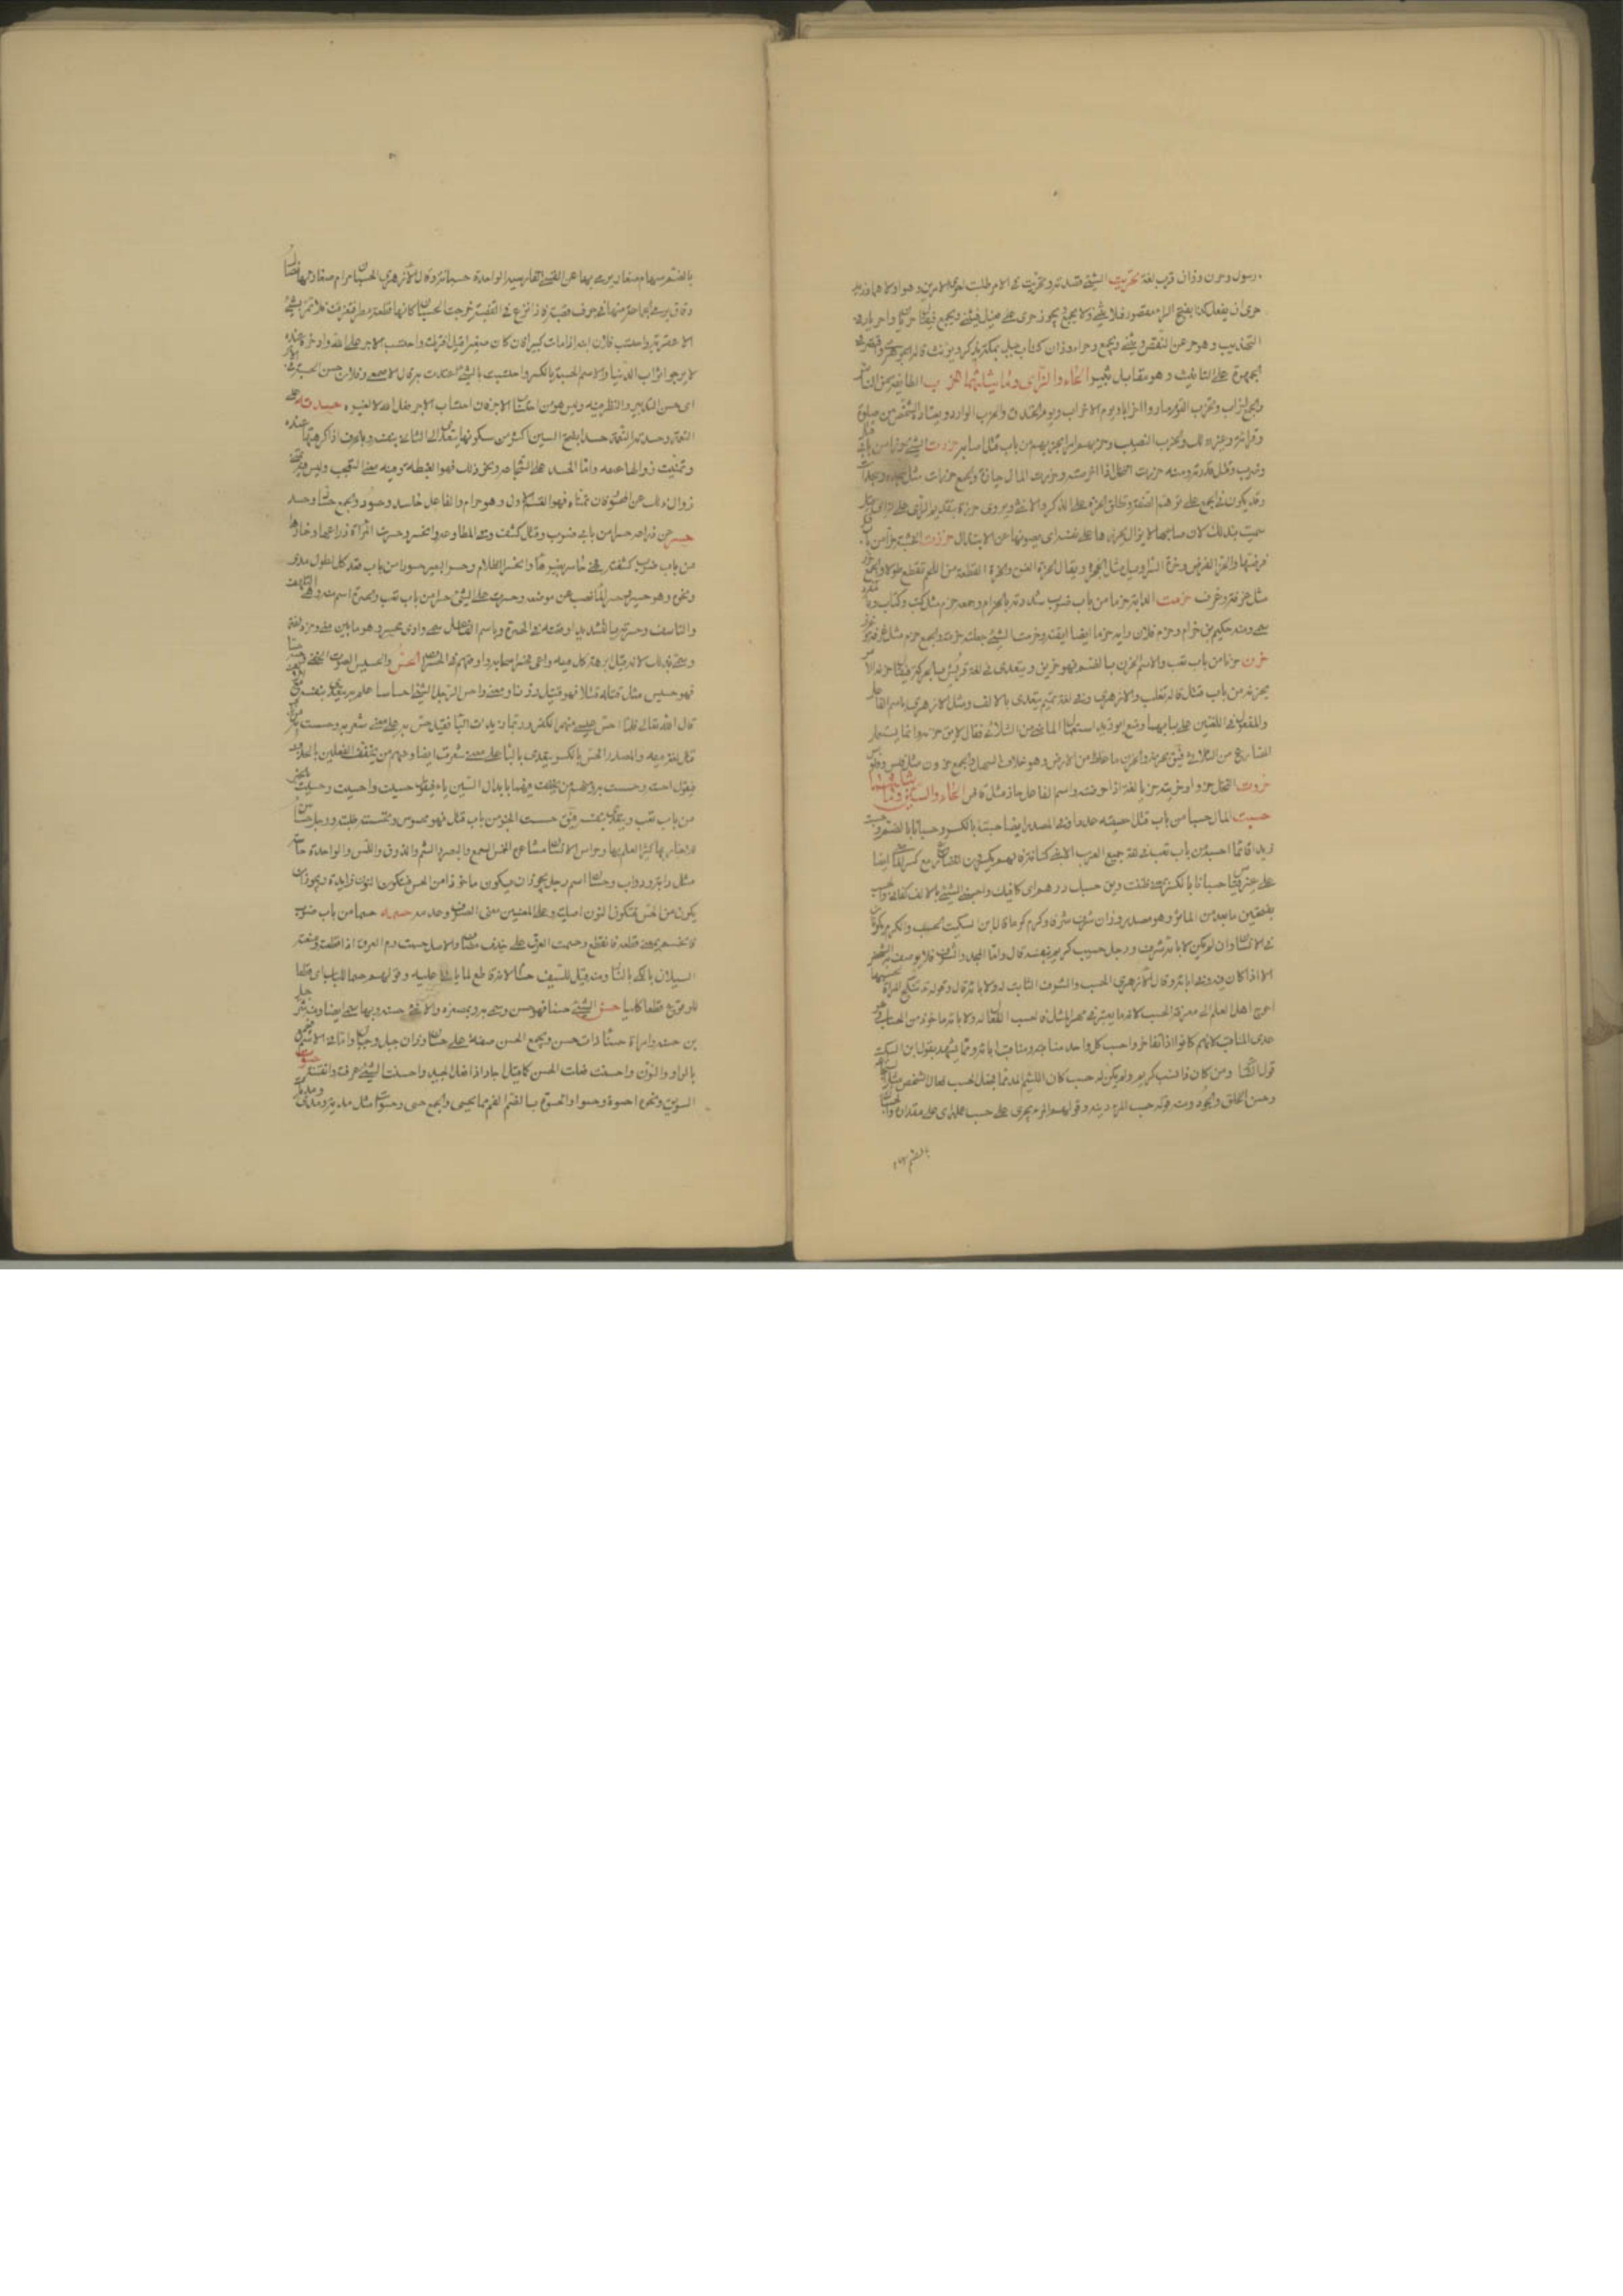 رسول وحرن وزان قرب لغة تحريت الشيء قصدته وتحريت في الامر طلبت احرى الامرين وهو اولاهما وزيد
حرى ان يفعل كذا بفتح الراء مقصور فلا يثنى ولا يجمع ويجوز حرى على فعيل فيثنى ويجمع فيقال حريان واحرياء وفي
التهذيب وهو حر عن النقص ويثنى ويجمع وحراء وزان كتاب جبل بمكة يذكر ويؤنث قاله الجوهري واقتصر في
الجمهرة على التانيث وهو مقابل ثبير الحاء والزاي وما يثلثهما الحزب الطائفة من الناس
والجمع احزاب وتحزب القوم صاروا احزابا ويوم الاحزاب ويوم الخندق والحزب الورد يعتاده الشخص من صلوة
وقراءة وغير ذلك والحزب النصيب وحزبهم امر يحزبهم من باب قتل اصابهم حزرت الشيء حزرا من بابي
وضرب وقتل قدرته ومنه حزرت النخل اذا خرصته وحزرة المال خياره والجمع حزرات مثل سجدة وسجدات
وقد يكون في الجمع على توهم الصفة وتطلق الحزرة على الذكر والانثى ويروى حرزة بتقديم الراء على الزاي قيل
سميت بذلك لان صاحبها لا يزال يحرزها على نفسه اى يصونها عن الابتذال حززت الخشبة حزا من باب
فرضتها والحز الفرض وحزة السراويل مثل الحجزة ويقال الحزة العنق والحزة القطعة من اللحم تقطع طولا والجمع حزز
مثل غرفة وغرف حزمت الدابة حزما من باب ضرب شددته بالحزام وجمعه حزم مثل كتاب وكتب وبالمفرد
سمى ومنه حكيم بن حزام وحزم فلان رايه حزما ايضا اتقنه وحزمت الشيء جعلته حزمة والجمع حزم مثل غرفة وغرف
حزن حزنا من باب تعب والاسم الحزن بالضم فهو حزين ويتعدى في لغة قريش بالحركة فيقال حزنه الامر
يحزنه من باب قتل قاله ثعلب والازهري وفي لغة تميم يتعدى بالالف ومثل الازهري باسم الفاعل
والمفعول في اللغتين على بابهما ومنع ابو زيد استعمال الماضي من الثلاثي فقال لا يق حزنه وانما يستعمل
المضارع من الثلاثي فيق يحزنه والحزن ما غلظ من الارض وهو خلاف السهل والجمع حزون مثل فلس وفلوس
حزوت النخل حزوا وحزيته حزيا لغة اذا خرصته واسم الفاعل حاز مثل قاض الحاء والسين وما يثلثهما
حسبت المال حسبا من باب قتل احصيته عددا وفي المصدر ايضا حسبة بالكسر وحسبانا بالضم وحسبت
زيدا قائما احسبه من باب تعب في لغة جميع العرب الا بني كنانة فانهم يكسرون المضارع مع كسر الماضي ايضا
على غير قياس حسبانا بالكسر بمعنى ظننت ويق حسبك درهم اى كافيك واحسبني الشيء بالالف كفاني والحسب
بفتحتين ما يعد من الماثر وهو مصدر وزان شرف شرفا وكرم كرما قال ابن السكيت الحسب والكرم يكونان
في الانسان وان لم يكن لابائه شرف ورجل حسيب كريم بنفسه قال واما المجد والشرف فلا يوصف بهما الشخص
الا اذا كان فيه وفي ابائه وقال الازهري الحسب والشرف الثابت له ولابائه قال وقوله تنكح المراة لحسبها
احوج اهل العلم الى معرفة الحسب لانه مما يعتبر في مهر المثل فالحسب الفعال له ولابائه ماخوذ من الحساب وهو
عد المناقب لانهم كانوا اذا تفاخروا حسب كل واحد مناقبه ومناقب ابائه ومما يشهد لقول ابن السكيت
قول الشاعر ومن كان ذا نسب كريم ولم يكن له حسب كان اللئيم المذمما فجعل الحسب فعال الشخص مثل الشجاعة
وحسن الخلق والجود ومنه قوله حسب المرء دينه وقولهم يجزى على حسب عمله اى على مقداره والحسبان
بالضم سهام
بالضم سهام صغار يرمى بها عن القسي الفارسية الواحدة حسبانة وقال الازهري الحسبان مرام صغار لها نصال
دقاق يرمى بجماعة منها في جوف قصبة فاذا نزع في القصبة خرجت الحسبان كانها قطعة مطر فتفرقت فلا تمر بشيء
الا عقرته واحتسب فلان ابنه اذا مات كبيرا فان كان صغيرا قيل افترطه واحتسب الاجر على الله ادخره عنده
لا يرجو ثواب الدنيا والاسم الحسبة بالكسر واحتسبت بالشيء اعتددت به قال الاصمعي وفلان حسن الحسبة في الامر
اى حسن التدبير والنظر فيه وليس هو من احتساب الاجر فان احتساب الاجر فعل الله لا لغيره حسدته على
النعمة وحسدته النعمة حسدا بفتح السين اكثر من سكونها يتعدى الى الثاني بنفسه وبالحرف اذا كرهتها عنده
وتمنيت زوالها عنه واما الحسد على الشجاعة ونحو ذلك فهو الغبطة وفيه معنى التعجب وليس فيه تمنى
زوال ذلك عن المحسود فان تمناه فهو القسم الاول وهو حرام والفاعل حاسد وحسود والجمع حساد وحسدة
حسر عن ذراعه حسرا من بابي ضرب وقتل كشف وفي المطاوعة فانحسر وحسرت المراة ذراعها وخمارها
من باب ضرب كشفته فهي حاسر بغير هاء وانحسر الظلام وحسر البصر حسورا من باب قعد كل لطول مدى
ونحوه فهو حسير وحسر الماء نضب عن موضعه وحسرت على الشيء حسرا من باب تعب والحسرة اسم منه وهي التلهف
والتاسف وحسرته بالتثقيل اوقعته في الحسرة وباسم الفاعل سمى وادى محسر وهو ما بين منى ومزدلفة
وسمى بذلك لان فيل ابرهة كل فيه واعيى فحسر اصحابه بفعله واوقعهم في الحسرات الحس والحسيس الصوت الخفي وحسه حسا
فهو حسيس مثل قتله قتلا فهو قتيل وزنا ومعنى واحس الرجل الشيء احساسا علم به يتعدى بنفسه مع الالف
قال الله تعالى فلما احس عيسى منهم الكفر وربما زيدت الباء فقيل احس به على معنى شعر به وحسست به من باب
قتل لغة فيه والمصدر الحس بالكسر يتعدى بالباء على معنى شعرت ايضا ومنهم من يخفف الفعلين بالحذف
فيقول احست وحست به ومنهم من يخفف فيهما بابدال السين ياء فيقول حسيت واحسيت وحسست بالخبر
من باب تعب ويتعدى بنفسه فيق حسست الخبر من باب قتل فهو محسوس وتحسسته طلبته ورجل حساس
للاخبار بها كثير العلم بها وحواس الانسان مشاعره الخمس السمع والبصر والشم والذوق واللمس والواحدة حاسة
مثل دابة ودواب وحسان اسم رجل يجوز ان يكون ماخوذا من الحس فتكون النون زائدة ويجوز ان
يكون من الحسن فتكون النون اصلية وعلى المعنيين يبنى الصرف وعدمه حسمه حسما من باب ضرب
فانحسم بمعنى قطعه فانقطع وحسمت العرق على حذف مضاف والاصل حسمت دم العرق اذا قطعته ومنعته
السيلان بالكي بالنار ومنه قيل للسيف حسام لانه قاطع لما ياتى عليه وقولهم حسما للباب اى قطعا
للوقوع قطعا كليا حسن الشيء حسنا فهو حسن وسمى به وبمصغره والانثى حسنة وبها سمى ايضا ومنه شرحبيل
بن حسنة وامراة حسناء ذات حسن ويجمع الحسن صفة على حسان وزان جبل وجبال واما في الاسم فيجمع
بالواو والنون واحسنت فعلت الحسن كما قيل اجاد اذا فعل الجيد واحسنت الشيء عرفته واتقنته حسوت
السويق ونحوه احسوه حسوا والحسوة بالضم الفم مما يحسى والجمع حسى وحسوات مثل مدية ومدى ومديات